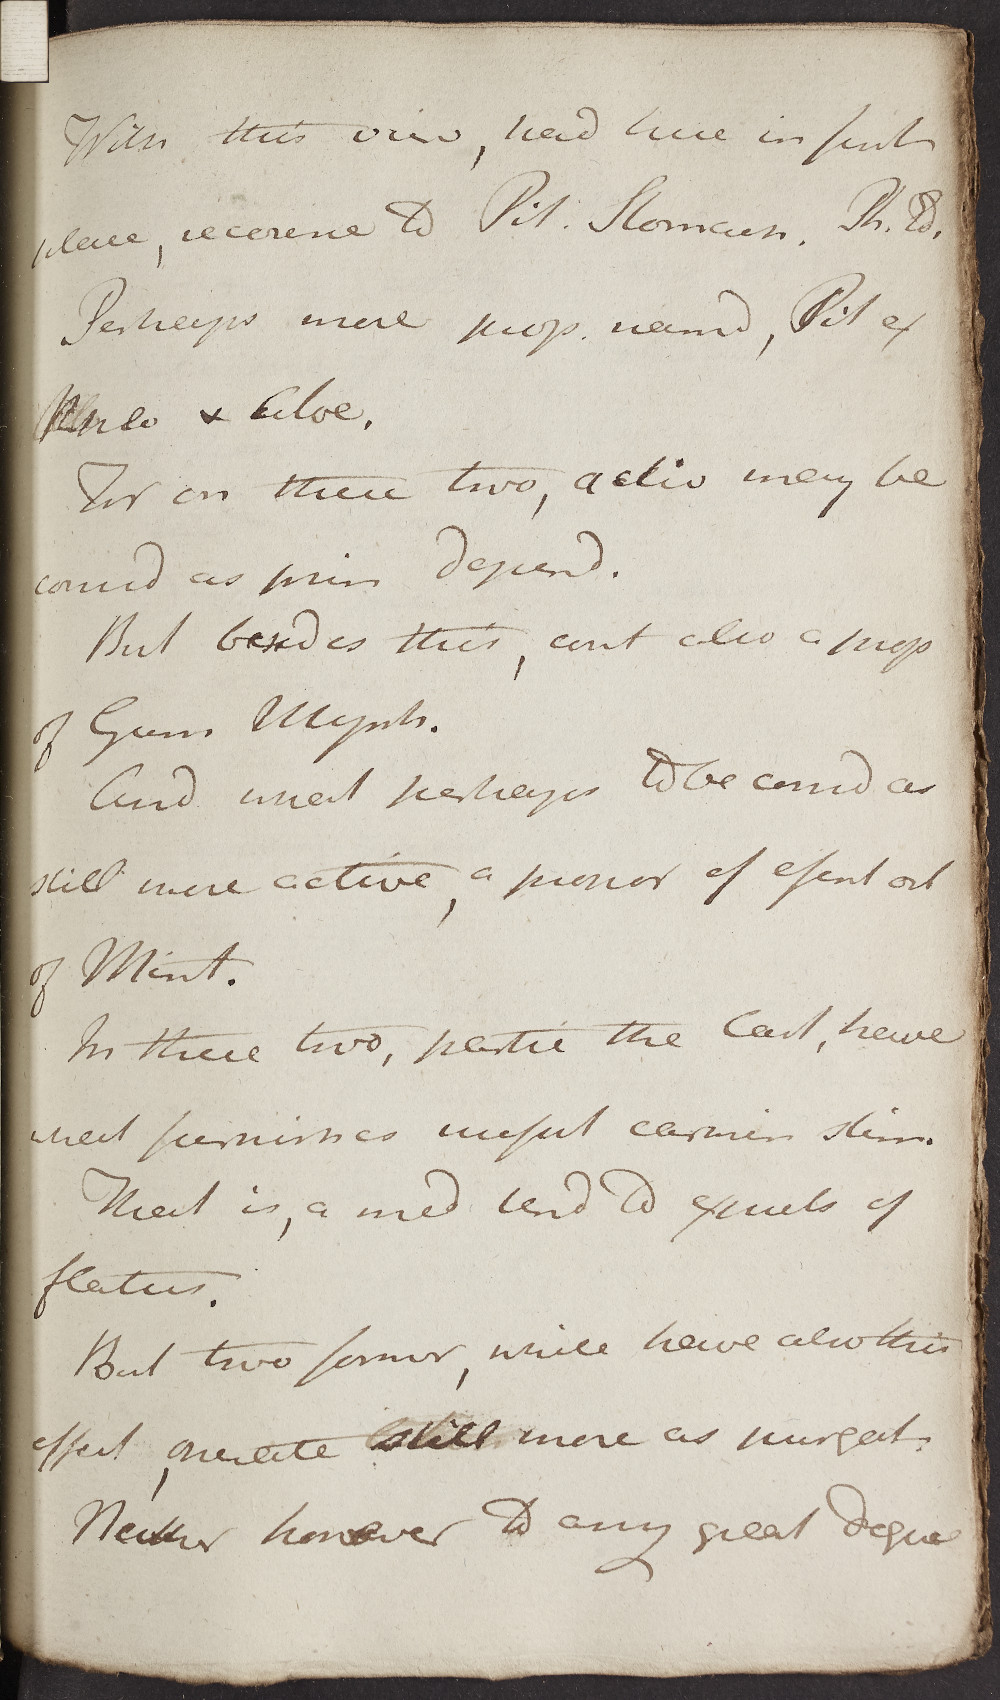 With this view, had here in first
place, recourse to Pil. Stomach. Ph. Ed.
Perhaps more prop. namd, Pil ex
Rheo & Aloe.
For on these two, actio may be
consd as prin depend.
But besides this, cont also a prop
of Gum Myrrh.
And what perhaps to be consd as
still more active, a proport of essent oil
of Mint.
In these two, partic the last, have
what furnishes useful carmin stim.
That is, a med tend to expuls of
flatus.
But two former, while have also this
effect, operate still more as purgat.
Neither however to any great degree